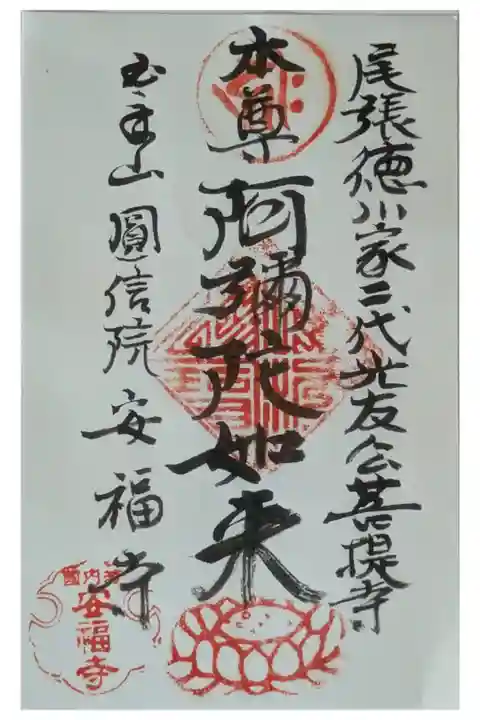 尾張徳川家二代光友公菩提寺
本尊阿彌陀如来
玉手山圓信院安福寺
河内國
安福寺